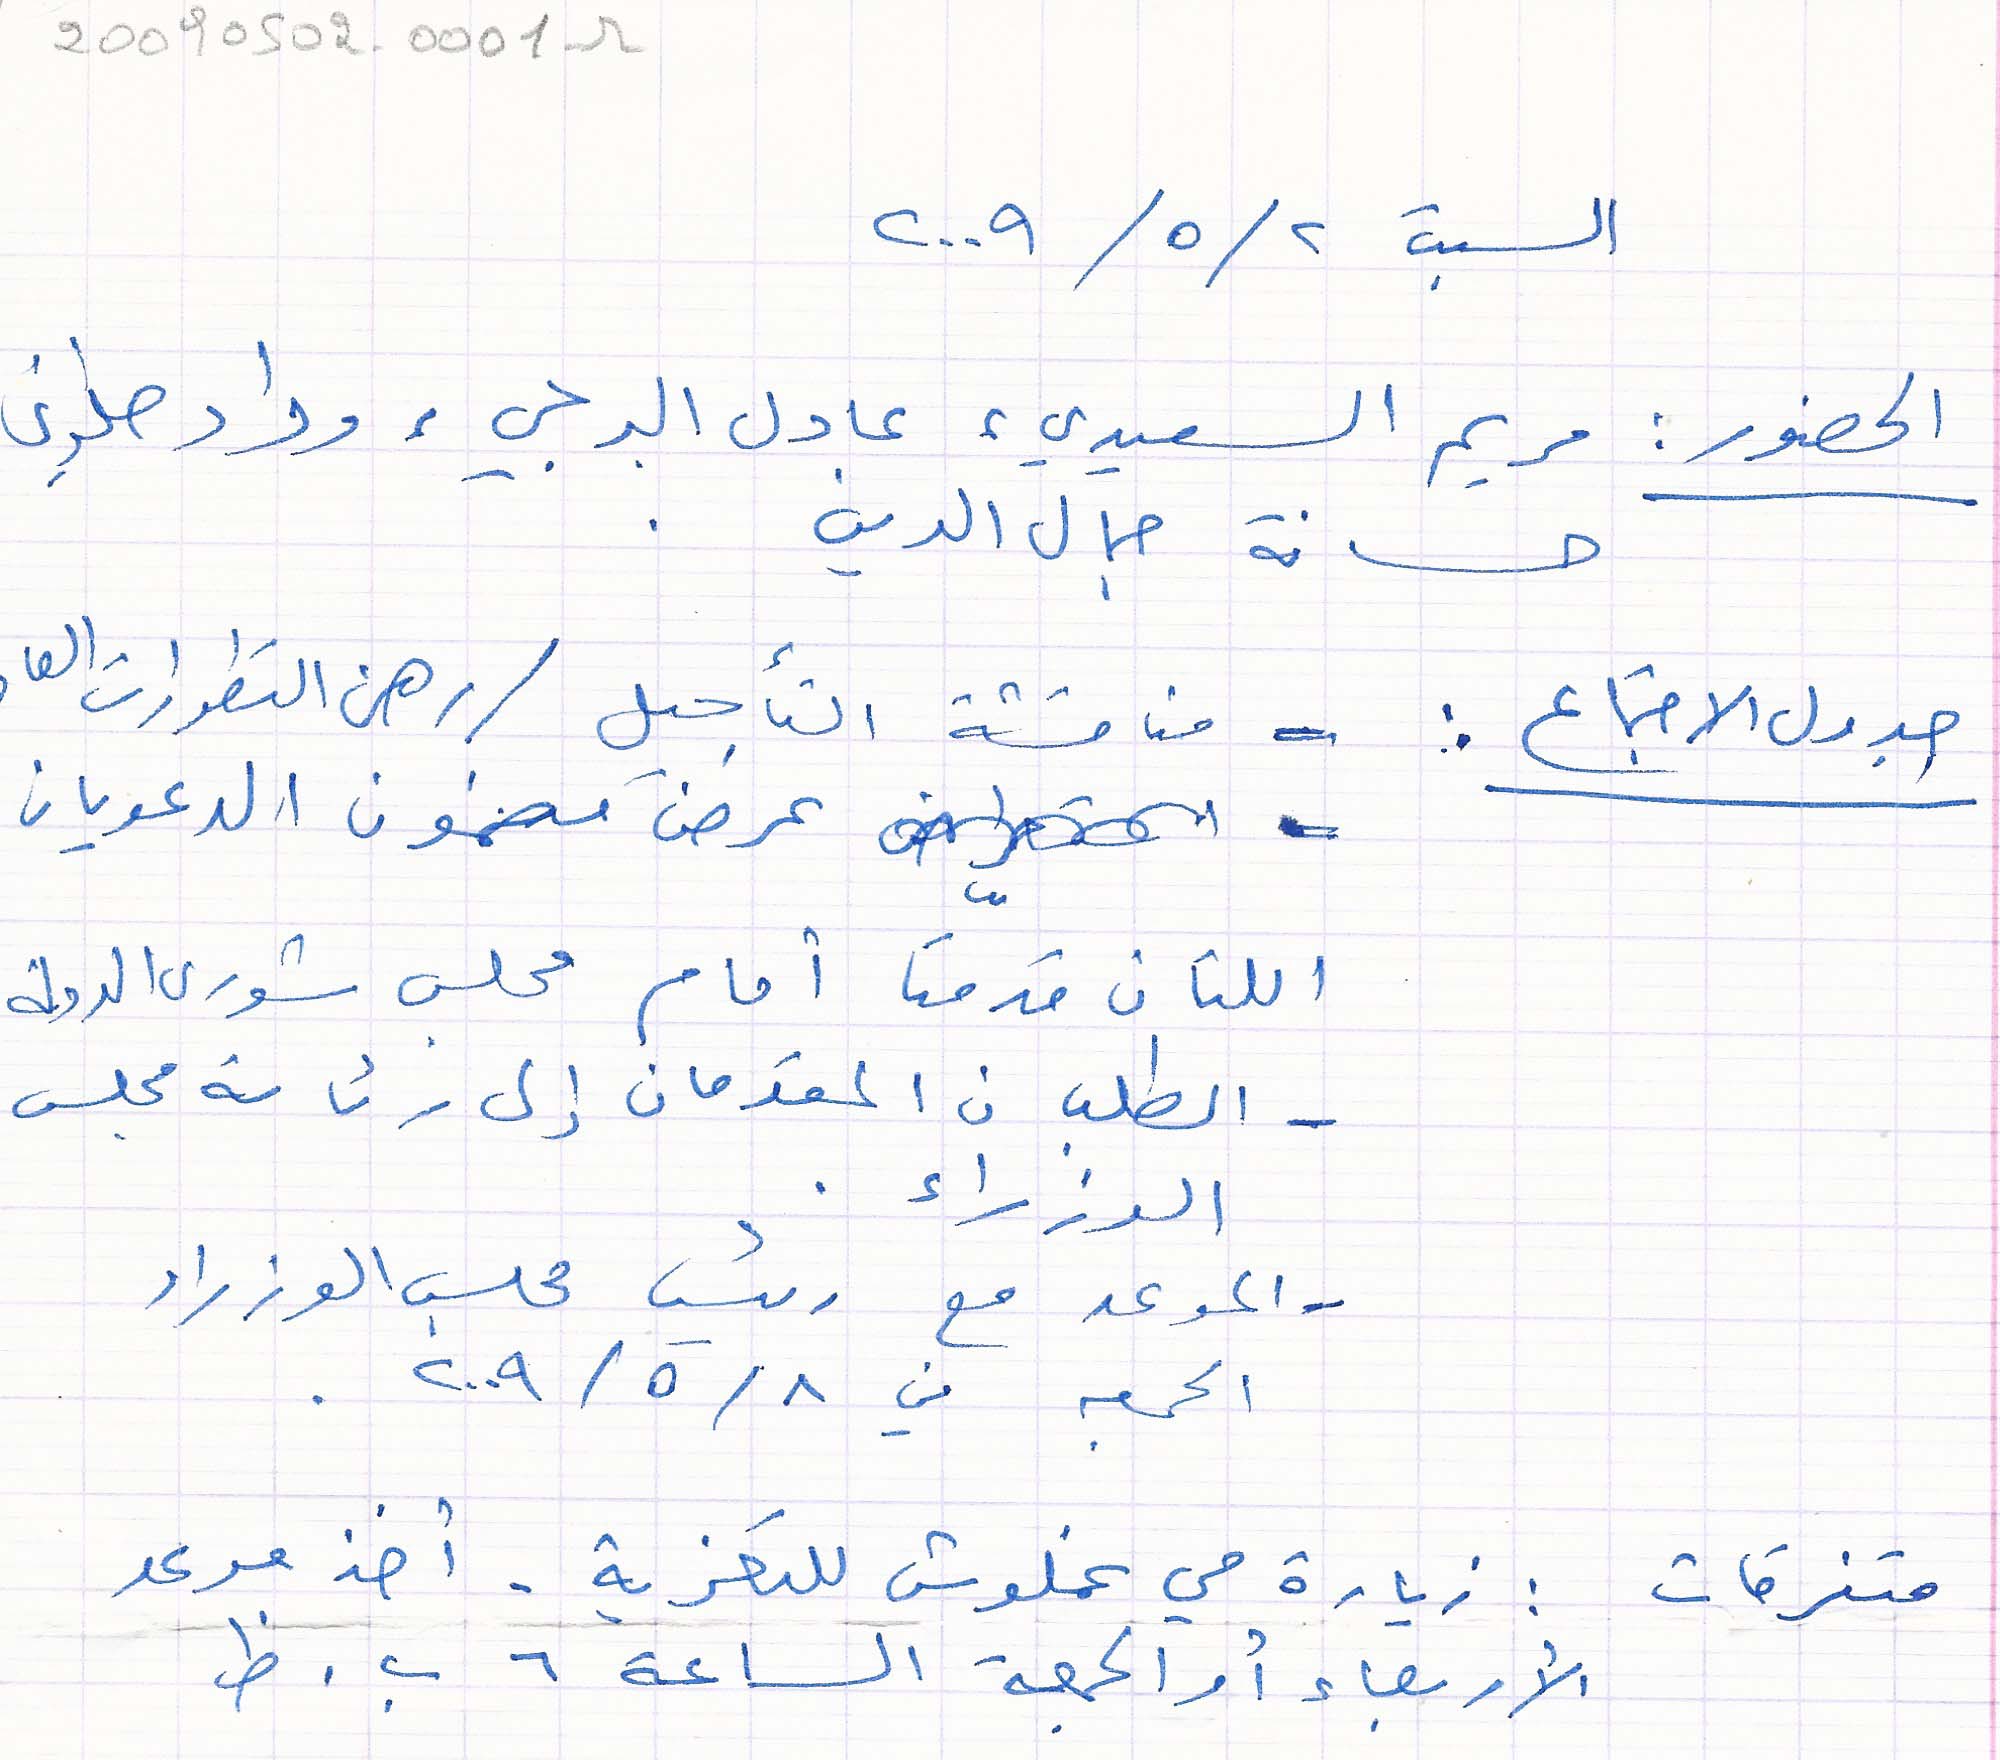 20090502-0001-R
السبت ٢/٥/٢٠٠٩
الحضور: مريم السعيدي، عادل البرجي، وداد حلواني
حسانة جمال الدين.
جدول الاجتماع: - مناقشة التأجيل / رهن التطورات
- عرض مضمون الدعويان
اللتان قدمتا أمام مجلس شورى الدولة
- الطلبان المقدمان إلى رئاسة مجلس
الوزراء.
- الموعد مع رئيس مجلس الوزراء
الجمعه في ٨/٥/٢٠٠٩.
متفرقات: زيارة مي للتعزية - أخذ موعد
الأربعاء أو الجمعة الساعة ٦ ب. ظ